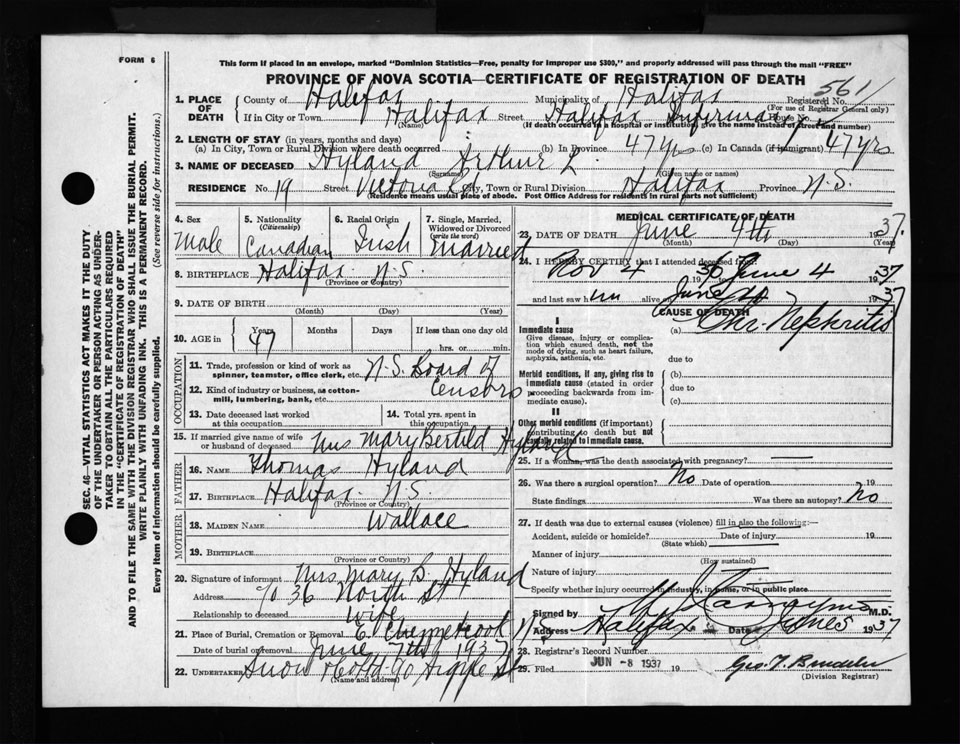 FORM 6
This form if placed in an envelope, marked "Dominion Statistics—Free, penalty for improper use $300," and properly addressed will pass through the mail "FREE"
PROVINCE OF NOVA SCOTIA—CERTIFICATE OF REGISTRATION OF DEATH
561
1. PLACE OF DEATH County of Halifax Municipality of Halifax Registered No.
(For use of Registrar General only)
If in City or Town Halifax Street Halifax Infirmary House No.
(Name) (If death occurred in a hospital or institution, give the name instead of street and number)
2. LENGTH OF STAY (in years, months and days)
(a) In City, Town or Rural Division where death occurred (b) In Province 47 yrs (c) In Canada (if immigrant) 47 yrs
3. NAME OF DECEASED Hyland Arthur L.
(Surname) (Given name or names)
RESIDENCE No. 19 Street Victoria City, Town or Rural Division Halifax Province N.S.
(Residence means usual place of abode. Post Office Address for residents in rural parts not sufficient)
4. Sex Male
5. Nationality (Citizenship) Canadian
6. Racial Origin Irish
7. Single, Married, Widowed or Divorced (write the word) Married
8. BIRTHPLACE Halifax N.S.
(Province or Country)
9. DATE OF BIRTH
(Month) (Day) (Year)
10. AGE in Years 47 Months Days If less than one day old
hrs. or min.
OCCUPATION
11. Trade, profession or kind of work as spinner, teamster, office clerk, etc. N.S. Board of Censors
12. Kind of industry or business, as cotton-mill, lumbering, bank, etc.
13. Date deceased last worked at this occupation
14. Total yrs. spent in this occupation
15. If married give name of wife or husband of deceased Mrs Mary Hyland
FATHER
16. NAME Thomas Hyland
17. BIRTHPLACE Halifax N.S.
(Province or Country)
MOTHER
18. MAIDEN NAME Wallace
19. BIRTHPLACE
(Province or Country)
20. Signature of informant Mrs Mary B. Hyland
Address 36 North St
Relationship to deceased wife
21. Place of Burial, Cremation or Removal E. Chezzetcook N.S.
Date of burial or removal June 7th 1937
22. UNDERTAKER Snow & Co Ltd 90 Argyle St
(Name and address)
MEDICAL CERTIFICATE OF DEATH
23. DATE OF DEATH June 4th 1937.
(Month) (Day) (Year)
24. I HEREBY CERTIFY that I attended deceased from
Nov 4 1930 June 4 1937
and last saw him alive on June 1937
CAUSE OF DEATH
I
Immediate cause (a) Chr. Nephritis
Give disease, injury or complication which caused death, not the mode of dying, such as heart failure, asphyxia, asthenia, etc.
due to
Morbid conditions, if any, giving rise to immediate cause (stated in order proceeding backwards from immediate cause).
(b)
due to
(c)
II
Other morbid conditions (if important) contributing to death but not causally related to immediate cause.
25. If a woman, was the death associated with pregnancy?
26. Was there a surgical operation? No Date of operation 19
State findings Was there an autopsy? No
27. If death was due to external causes (violence) fill in also the following:—
Accident, suicide or homicide? Date of injury 19
(State which)
Manner of injury
(How sustained)
Nature of injury
Specify whether injury occurred in industry, in home, or in public place
Signed by M.D.
Address Halifax Date June 5 1937
28. Registrar's Record Number
29. Filed JUN -8 1937 19
(Division Registrar)
SEC. 46—VITAL STATISTICS ACT MAKES IT THE DUTY
OF THE UNDERTAKER OR PERSON ACTING AS UNDER-
TAKER TO OBTAIN ALL THE PARTICULARS REQUIRED
IN THE "CERTIFICATE OF REGISTRATION OF DEATH"
AND TO FILE THE SAME WITH THE DIVISION REGISTRAR WHO SHALL ISSUE THE BURIAL PERMIT.
WRITE PLAINLY WITH UNFADING INK. THIS IS A PERMANENT RECORD.
Every item of information should be carefully supplied. (See reverse side for instructions.)